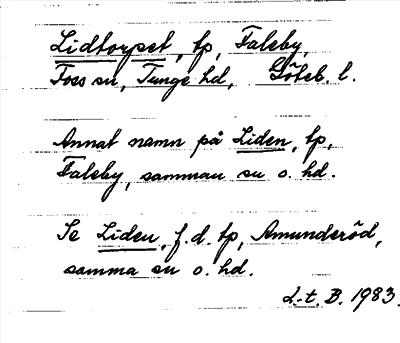 Lidtorpet, tp, Faleby,
Foss sn, Tunge hd, Göteb. l.
Annat namn på Liden, tp,
Faleby, samman sn o. hd.
Se Liden, f.d. tp, Amunderöd,
samma sn o. hd.
L-t. B. 1983.